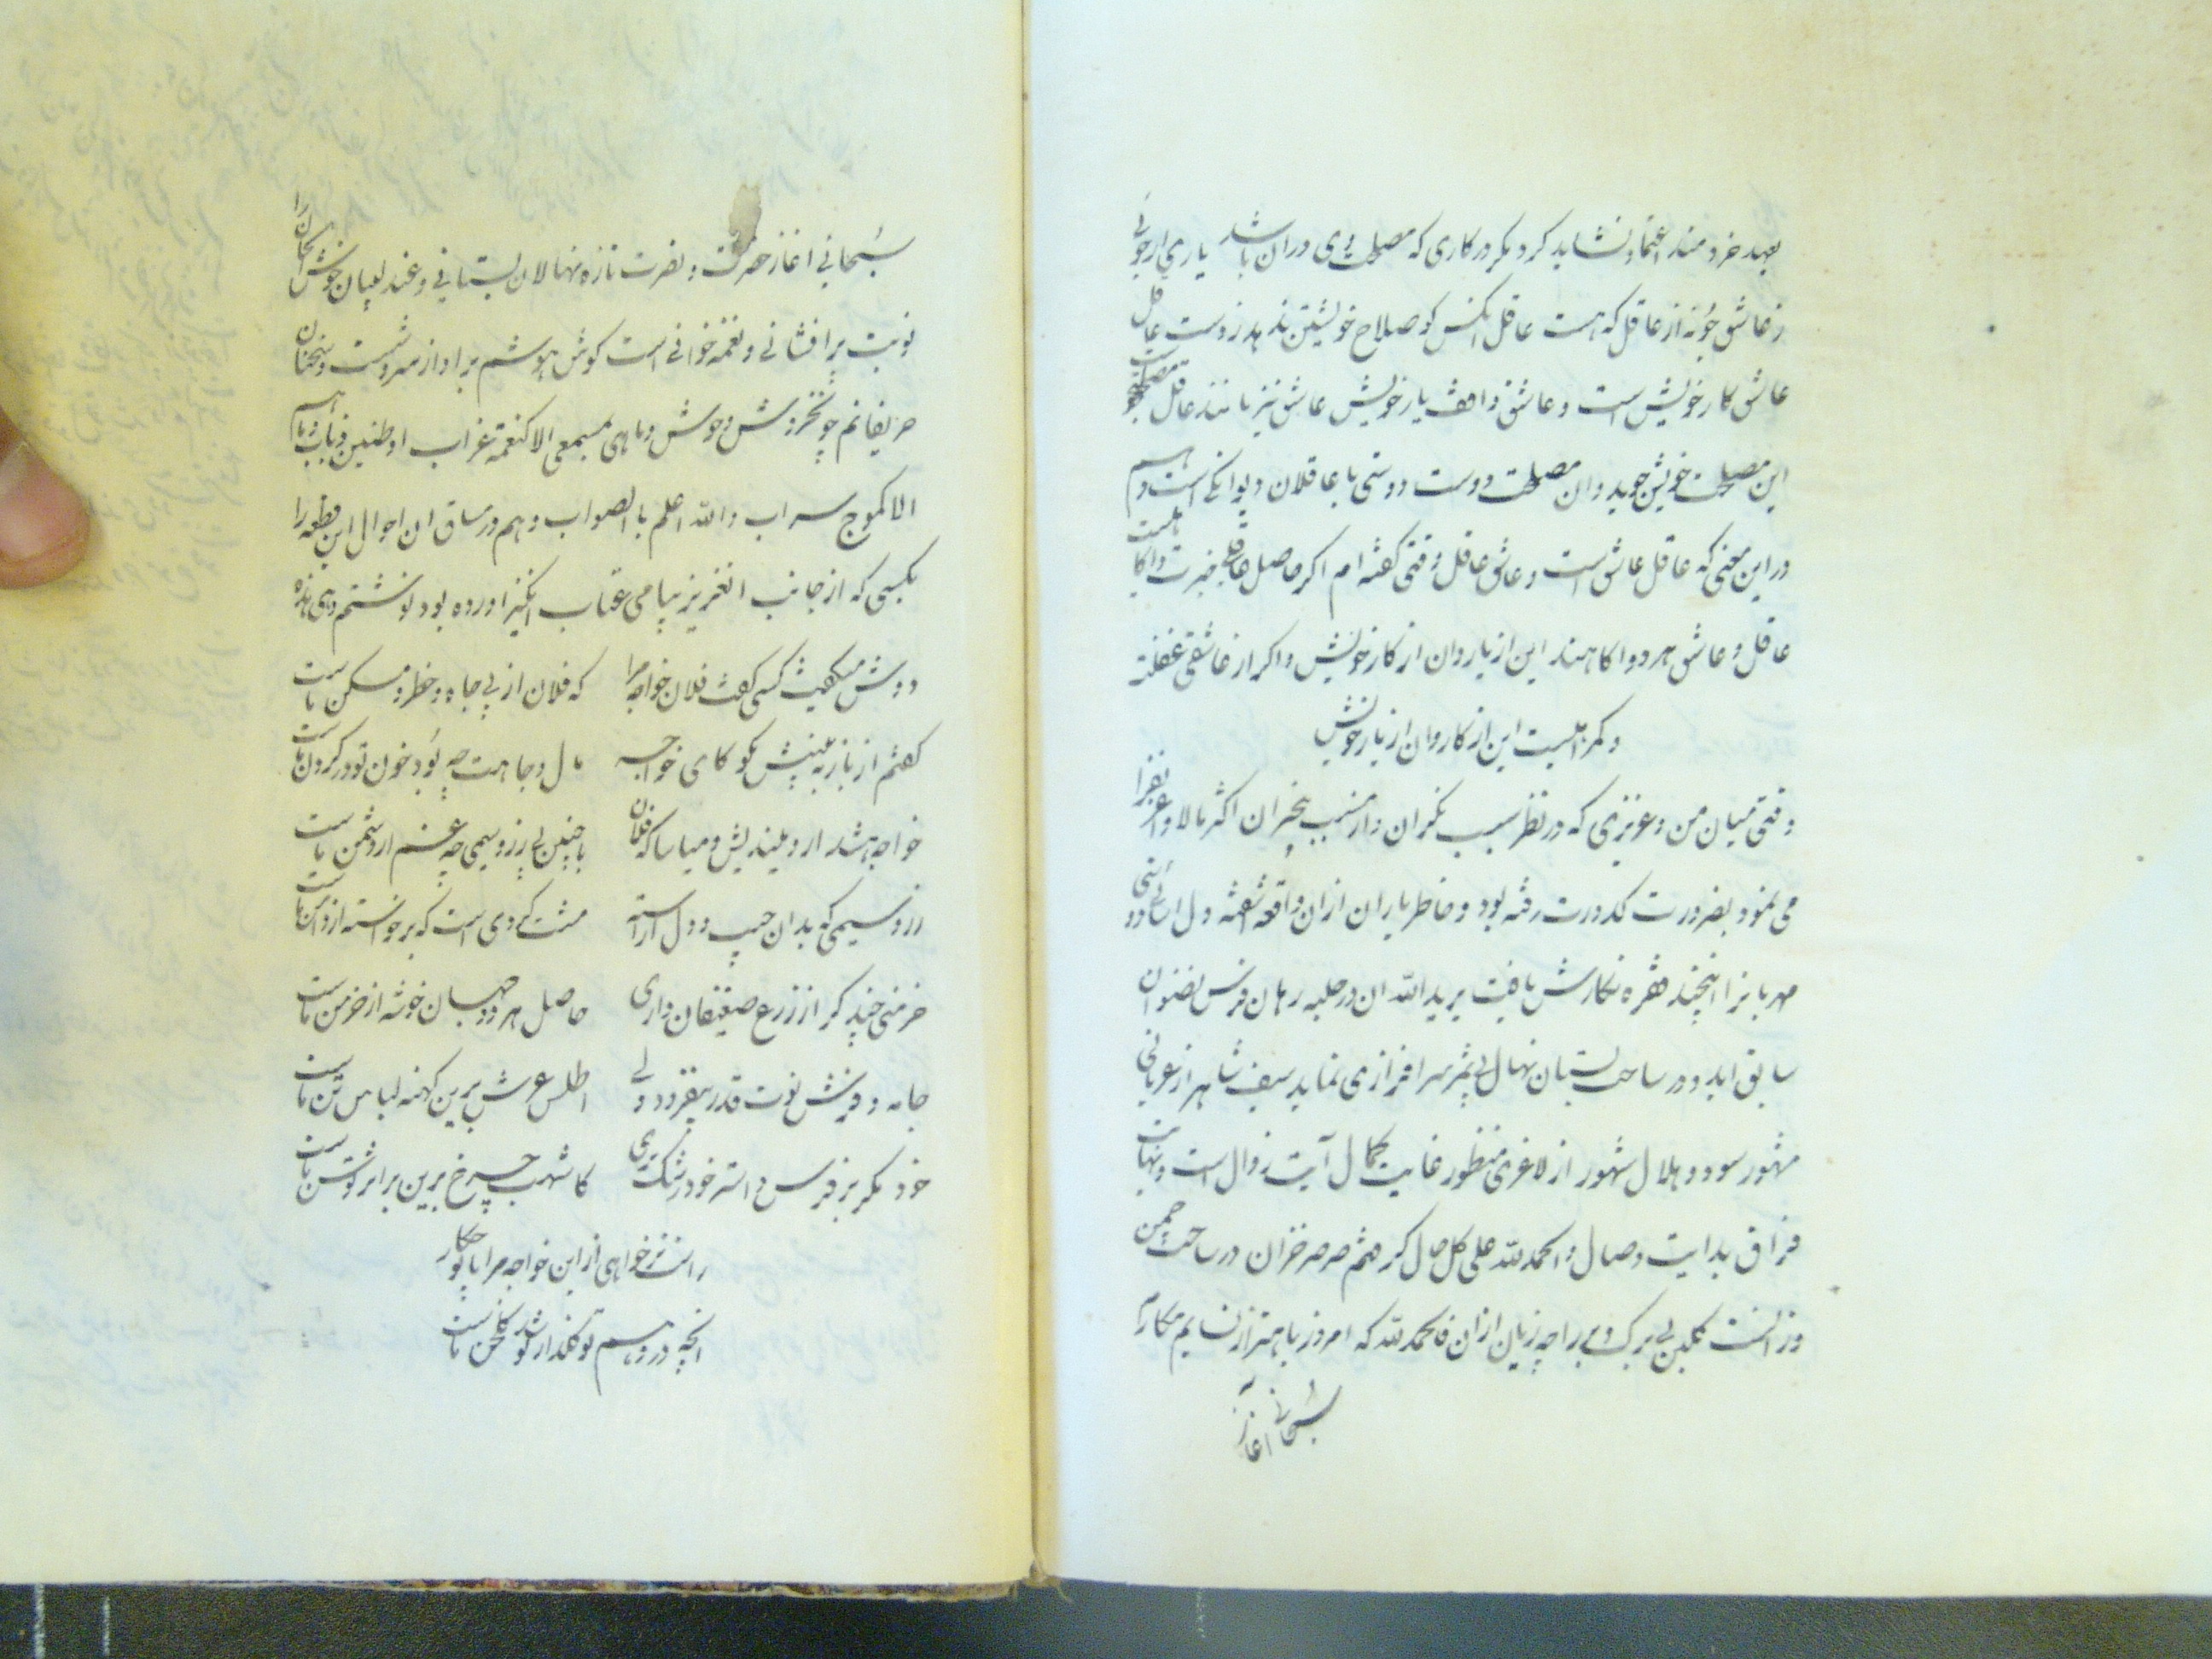 بعهد خردمند اعتماد نشاید کرد مگر در کاری که مصلحت وی در ان باشد یاری ار جوئی
ز عاشق جو نه از عاقل که هست عاقل انکس کو صلاح خویشتن ندهد ز دست عاقل
عاشق کار خویش است و عاشق واقف یار خویش عاشق نیز مانند عاقل مصلحت
این مصلحت خویش جوید وان مصلحت دوست دوستی با عاقلان دیوانگی است و هم
در این معنی که عاقل عاشق است و عاشق عاقل وقتی گفته ام اگر حاصل
عاقل و عاشق هر دو اکاهند این از یار وان از کار خویش و اگر از عاشقی غفلت
این از کار وان از یار خویش
وقتی میان من و عزیزی که در نظر سبب نگران و از مسبب بیخبران اکثر مالا و اعز نفرا
می نمود بضرورت کدورت رفته بود و خاطر یاران ازان واقعه اشفته
مهربانرا اینچند فقره نگارش یافت یرید الله ان در حلبه رهان فرس نضوان
سابق اید و در ساحت بستان نهال بی ثمر سرافرازی نماید سیف شاهر از عریانی
مشهور سود و هلال شهور از لاغری منظور غایت کمال آیت زوال است و نهایت
فراق بدایت وصال والحمد لله علی کل حال گرفتم صرصر خزان در ساحت چمن
وزانست گلبن بی برک و بر را چه زیان ازان فالحمد لله که امروز باهتزاز نسایم
سبحانی اغاز
سبحانی اغاز خضرت و نضرت تازه نهالان بستانی و عندلیبان خوش الحان را
نوبت پرافشانی و نغمه خوانی است گوش هوشم بر اواز سروشست و سخنان
حریفانم چو خروش وحوش و ماهی بمسمعی الا کنغمة غراب او طنین ذباب و ماهم
الا کموج سراب والله اعلم بالصواب و هم در مساق ان احوال این قطعه را
بکسی که از جانب انعزیز پیامی عتاب انگیز اورده بود نوشتم و هی هذه
دوش میگفت کسی گفت فلان خواجه مرا که فلان از پی جاه و خطر و مسکن ماست
گفتم از باز به بینیش بگو کای خواجه مال و جاهت چه بود خون تو در گردن ماست
خواجه هشدار و میندیش و میاسا که فلان با چنین بی زر و سیمی چه غم ار دشمن ماست
زر و سیمی که بدان جیب و دل اراسته مشت گردی است که برخواسته از دامن ماست
خرمنی چند گر از زرع ضعیفان داری حاصل هر دو جهان خوشه از خرمن ماست
جامه و فرش نوت قدر بیفزود ولی اطلس عرش برین کهنه لباس تن ماست
خود مگر بر فرس و استر خود رشک بری کاشهب چرخ برین توسن ماست
راست خواهی از این خواجه مرا با تو چکار
انچه در وهم تو گلزار شود گلخن ماست